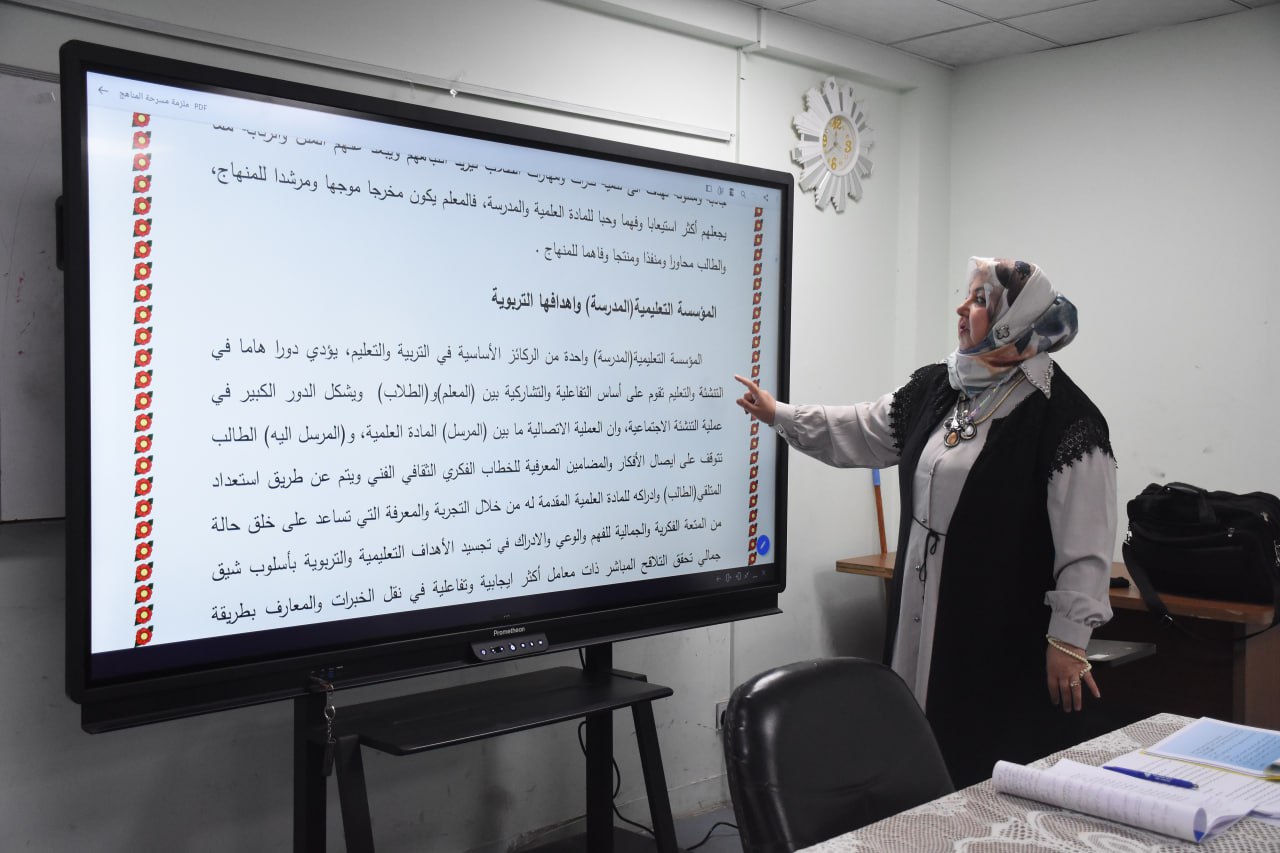 ملزمة مسرحة المناهج PDF
يجعلهم أكثر استيعابا وفهما وحبا للمادة العلمية والمدرسة، فالمعلم يكون مخرجا موجها ومرشدا للمنهاج،
والطالب محاورا ومنفذا ومنتجا وفاهما للمنهاج .
المؤسسة التعليمية(المدرسة) واهدافها التربوية
المؤسسة التعليمية(المدرسة) واحدة من الركائز الأساسية في التربية والتعليم، يؤدي دورا هاما في
التنشئة والتعليم تقوم على أساس التفاعلية والتشاركية بين (المعلم)و(الطلاب) ويشكل الدور الكبير في
عملية التنشئة الاجتماعية، وان العملية الاتصالية ما بين (المرسل) المادة العلمية، و(المرسل اليه) الطالب
تتوقف على ايصال الأفكار والمضامين المعرفية للخطاب الفكري الثقافي الفني ويتم عن طريق استعداد
المتلقي(الطالب) وادراكه للمادة العلمية المقدمة له من خلال التجربة والمعرفة التي تساعد على خلق حالة
من المتعة الفكرية والجمالية للفهم والوعي والادراك في تجسيد الأهداف التعليمية والتربوية بأسلوب شيق
جمالي تحقق التلاقح المباشر ذات معامل أكثر ايجابية وتفاعلية في نقل الخبرات والمعارف بطريقة
Promethean
12
9
3
6